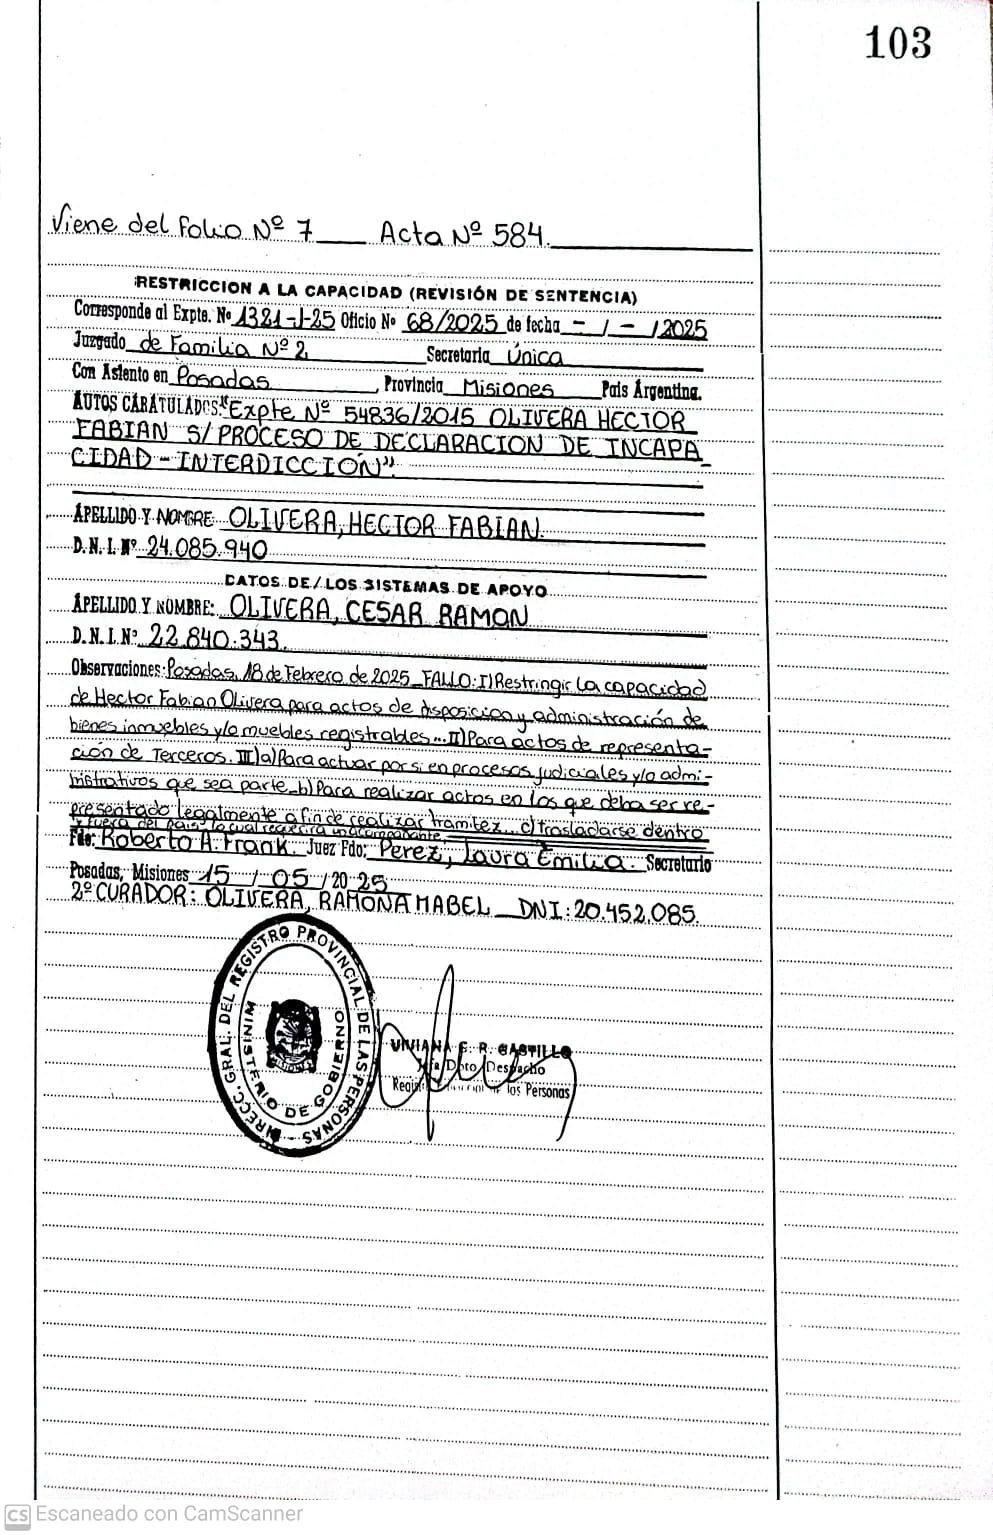 103
Viene del Folio Nº 7 ___ Acta Nº 584.
RESTRICCION A LA CAPACIDAD (REVISIÓN DE SENTENCIA)
Corresponde al Expte. Nº 1321-J-25 Oficio Nº 68/2025 de fecha - / - / 2025
Juzgado de Familia Nº 2 Secretaria Única
Con Asiento en Posadas, Provincia Misiones País Argentina.
AUTOS CARATULADOS: "Expte Nº 54836/2015 OLIVERA HECTOR
FABIAN S/PROCESO DE DECLARACION DE INCAPA
CIDAD - INTERDICCIÓN"
APELLIDO Y NOMBRE OLIVERA, HECTOR FABIAN.
D.N.I. Nº 24.085.940
DATOS DE/LOS SISTEMAS DE APOYO
APELLIDO Y NOMBRE: OLIVERA, CESAR RAMON
D.N.I. Nº 22.840.343.
Observaciones: Posadas, 18 de Febrero de 2025_ FALLO: I) Restringir la capacidad
de Hector Fabian Olivera para actos de disposicion y administración de
bienes inmuebles y/o muebles registrables... II) Para actos de representa-
ción de Terceros. III) a) Para actuar por si en procesos judiciales y/o admi-
nistrativos que sea parte_ b) Para realizar actos en los que deba ser re-
presentado legalmente a fin de realizar tramitez... c) trasladarse dentro
y fuera del pais lo cual requerira un acompañante
Fdo: Roberto A. Frank. Juez Fdo: Perez, Laura Emilia. Secretario
Posadas, Misiones 15 / 05 / 2025
2º CURADOR: OLIVERA, RAMONA MABEL _ DNI: 20.452.085.
DIRECC. GRAL. DEL REGISTRO PROVINCIAL DE LAS PERSONAS
MINISTERIO DE GOBIERNO
VIVIANA E. R. CASTILLO
Jefa Dpto. Despacho
de las Personas
CS Escaneado con CamScanner